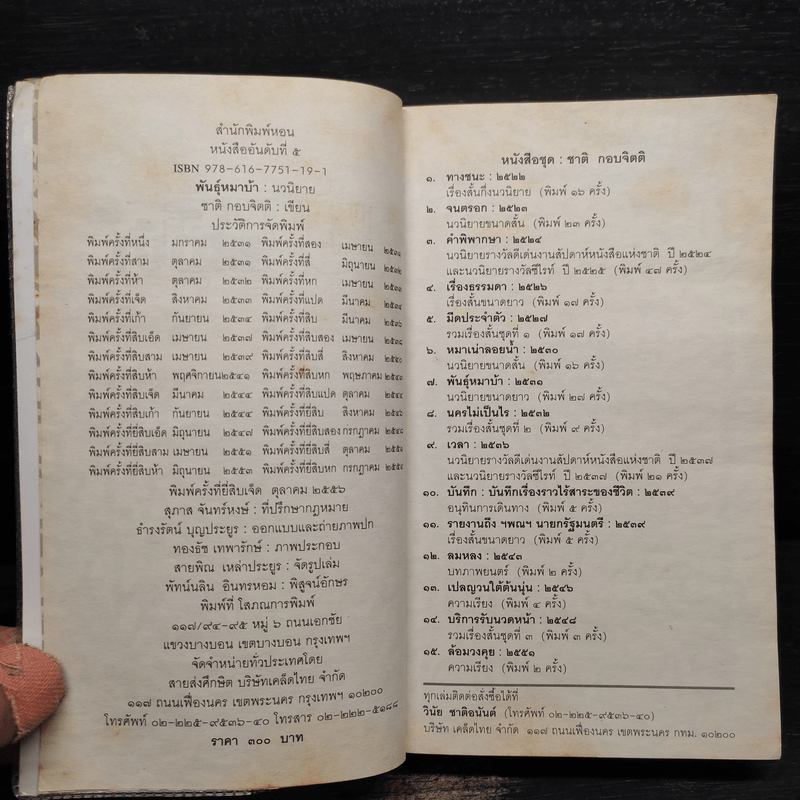 สำนักพิมพ์หอน
หนังสืออันดับที่ ๕
ISBN 978-616-7751-19-1
พันธุ์หมาบ้า : นวนิยาย
ชาติ กอบจิตติ : เขียน
ประวัติการจัดพิมพ์
พิมพ์ครั้งที่หนึ่ง มกราคม ๒๕๓๑ พิมพ์ครั้งที่สอง เมษายน ๒๕๓๑
พิมพ์ครั้งที่สาม ตุลาคม ๒๕๓๑ พิมพ์ครั้งที่สี่ มิถุนายน ๒๕๓๒
พิมพ์ครั้งที่ห้า ตุลาคม ๒๕๓๒ พิมพ์ครั้งที่หก เมษายน ๒๕๓๓
พิมพ์ครั้งที่เจ็ด สิงหาคม ๒๕๓๓ พิมพ์ครั้งที่แปด มีนาคม ๒๕๓๔
พิมพ์ครั้งที่เก้า กันยายน ๒๕๓๔ พิมพ์ครั้งที่สิบ มีนาคม ๒๕๓๖
พิมพ์ครั้งที่สิบเอ็ด เมษายน ๒๕๓๗ พิมพ์ครั้งที่สิบสอง เมษายน
พิมพ์ครั้งที่สิบสาม เมษายน ๒๕๓๙ พิมพ์ครั้งที่สิบสี่ สิงหาคม
พิมพ์ครั้งที่สิบห้า พฤศจิกายน ๒๕๔๑ พิมพ์ครั้งที่สิบหก พฤษภาคม
พิมพ์ครั้งที่สิบเจ็ด มีนาคม ๒๕๔๔ พิมพ์ครั้งที่สิบแปด ตุลาคม
พิมพ์ครั้งที่สิบเก้า กันยายน ๒๕๔๕ พิมพ์ครั้งที่ยี่สิบ สิงหาคม
พิมพ์ครั้งที่ยี่สิบเอ็ด มิถุนายน ๒๕๔๗ พิมพ์ครั้งที่ยี่สิบสอง กรกฎาคม
พิมพ์ครั้งที่ยี่สิบสาม เมษายน ๒๕๕๑ พิมพ์ครั้งที่ยี่สิบสี่ ตุลาคม
พิมพ์ครั้งที่ยี่สิบห้า มิถุนายน ๒๕๕๓ พิมพ์ครั้งที่ยี่สิบหก กรกฎาคม
พิมพ์ครั้งที่ยี่สิบเจ็ด ตุลาคม ๒๕๕๖
สุภาส จันทร์หงษ์ : ที่ปรึกษากฎหมาย
ธำรงรัตน์ บุญประยูร : ออกแบบและถ่ายภาพปก
ทองธัช เทพารักษ์ : ภาพประกอบ
สายพิณ เหล่าประยูร : จัดรูปเล่ม
พัทน์นลิน อินทรหอม : พิสูจน์อักษร
พิมพ์ที่ โสภณการพิมพ์
๑๑๗/๙๔-๙๕ หมู่ ๖ ถนนเอกชัย
แขวงบางบอน เขตบางบอน กรุงเทพฯ
จัดจำหน่ายทั่วประเทศโดย
สายส่งศึกษิต บริษัทเคล็ดไทย จำกัด
๑๑๗ ถนนเฟื่องนคร เขตพระนคร กรุงเทพฯ ๑๐๒๐๐
โทรศัพท์ ๐๒-๒๒๕-๙๕๓๖-๔๐ โทรสาร ๐๒-๒๒๒-๕๑๘๘
ราคา ๓๐๐ บาท
หนังสือชุด : ชาติ กอบจิตติ
๑. ทางชนะ : ๒๕๒๒
เรื่องสั้นกึ่งนวนิยาย (พิมพ์ ๑๖ ครั้ง)
๒. จนตรอก : ๒๕๒๓
นวนิยายขนาดสั้น (พิมพ์ ๒๓ ครั้ง)
๓. คำพิพากษา : ๒๕๒๔
นวนิยายรางวัลดีเด่นงานสัปดาห์หนังสือแห่งชาติ ปี ๒๕๒๔
และนวนิยายรางวัลซีไรท์ ปี ๒๕๒๕ (พิมพ์ ๔๗ ครั้ง)
๔. เรื่องธรรมดา : ๒๕๒๖
เรื่องสั้นขนาดยาว (พิมพ์ ๑๗ ครั้ง)
๕. มีดประจำตัว : ๒๕๒๗
รวมเรื่องสั้นชุดที่ ๑ (พิมพ์ ๑๗ ครั้ง)
๖. หมาเน่าลอยน้ำ : ๒๕๓๐
นวนิยายขนาดสั้น (พิมพ์ ๑๖ ครั้ง)
๗. พันธุ์หมาบ้า : ๒๕๓๑
นวนิยายขนาดยาว (พิมพ์ ๒๗ ครั้ง)
๘. นครไม่เป็นไร : ๒๕๓๒
รวมเรื่องสั้นชุดที่ ๒ (พิมพ์ ๙ ครั้ง)
๙. เวลา : ๒๕๓๖
นวนิยายรางวัลดีเด่นงานสัปดาห์หนังสือแห่งชาติ ปี ๒๕๓๗
และนวนิยายรางวัลซีไรท์ ปี ๒๕๓๗ (พิมพ์ ๒๑ ครั้ง)
๑๐. บันทึก : บันทึกเรื่องราวไร้สาระของชีวิต : ๒๕๓๙
อนุทินการเดินทาง (พิมพ์ ๕ ครั้ง)
๑๑. รายงานถึง ฯพณฯ นายกรัฐมนตรี : ๒๕๓๙
เรื่องสั้นขนาดยาว (พิมพ์ ๕ ครั้ง)
๑๒. ลมหลง : ๒๕๔๓
บทภาพยนตร์ (พิมพ์ ๒ ครั้ง)
๑๓. เปลญวนใต้ต้นนุ่น : ๒๕๔๖
ความเรียง (พิมพ์ ๔ ครั้ง)
๑๔. บริการรับนวดหน้า : ๒๕๔๘
รวมเรื่องสั้นชุดที่ ๓ (พิมพ์ ๓ ครั้ง)
๑๕. ล้อมวงคุย : ๒๕๕๑
ความเรียง (พิมพ์ ๒ ครั้ง)
ทุกเล่มติดต่อสั่งซื้อได้ที่
วินัย ชาติอนันต์ (โทรศัพท์ ๐๒-๒๒๕-๙๕๓๖-๔๐)
บริษัท เคล็ดไทย จำกัด ๑๑๗ ถนนเฟื่องนคร เขตพระนคร กทม. ๑๐๒๐๐